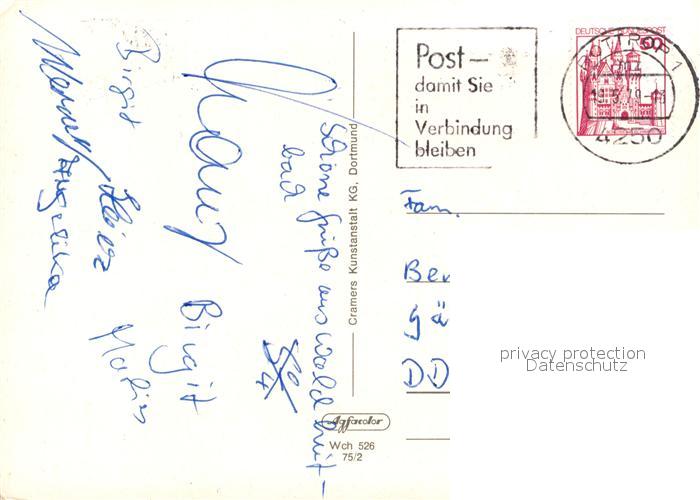 Post-
damit Sie
in
Verbindung
bleiben
DEUTSCHE BUNDESPOST
50
BOTTROP 1
4250
Fam.
Ber
gä
DD
privacy protection
Datenschutz
Schöne Grüße aus Waldbreit-
bad
Birgit
Heinz
Angelika
Birgit
Cramers Kunstanstalt KG, Dortmund
Agfacolor
Wch 526
75/2